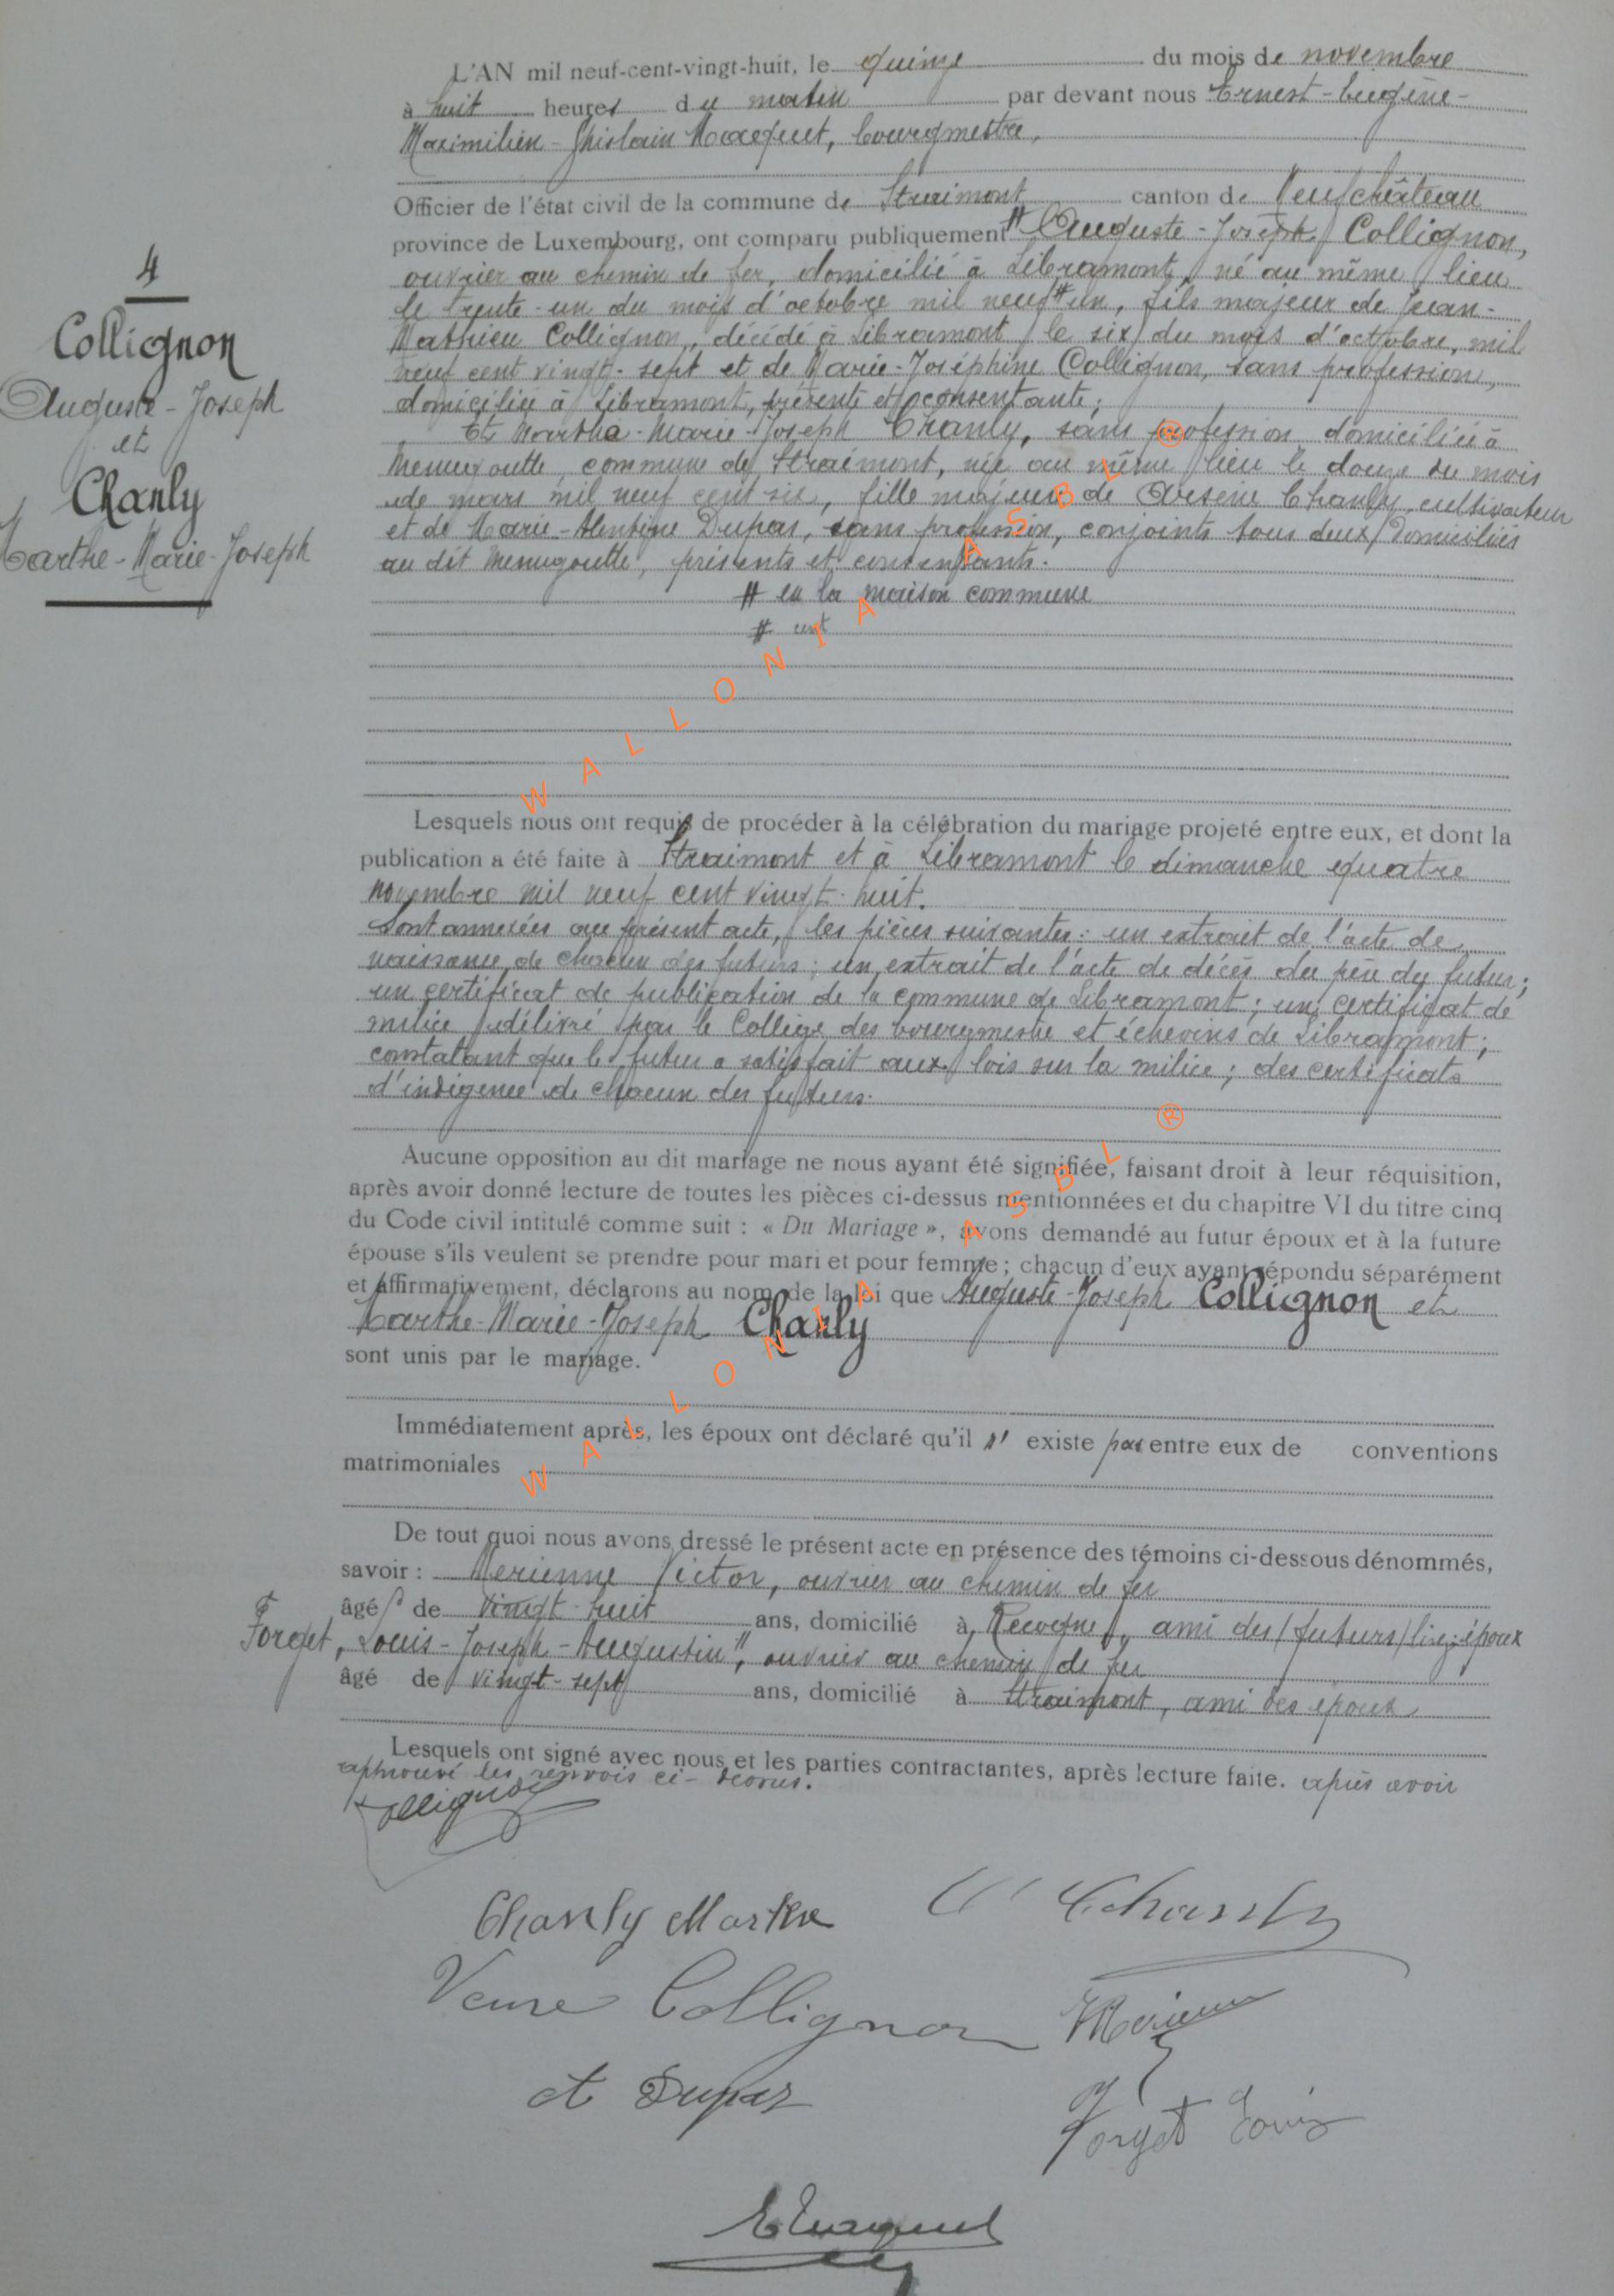 L'AN mil neuf-cent-vingt-huit, le quinze du mois de novembre
à huit heures du matin par devant nous Ernest-Eugène-
Maximilien-Ghislain Macquet, bourgmestre,
Officier de l'état civil de la commune de Straimont canton de Neufchâteau
province de Luxembourg, ont comparu publiquement # Auguste-Joseph Collignon,
ouvrier au chemin de fer, domicilié à Libramont, né au même lieu
le trente-un du mois d'octobre mil neuf # un, fils majeur de Jean-
Mathieu Collignon, décédé à Libramont le six du mois d'octobre, mil
neuf cent vingt-sept et de Marie-Joséphine Collignon, sans profession,
domiciliée à Libramont, présente et consentante;
Et Martha-Marie-Joseph Chanly, sans profession, domiciliée à
Menugoutte, commune de Straimont, née au même lieu le douze du mois
de mars mil neuf cent six, fille majeure de Arsène Chanly, cultivateur
et de Marie- Dupas, sans profession, conjoints tous deux domiciliés
au dit Menugoutte, présents et consentants.
# en la maison commune
# cent
4
Collignon
Auguste-Joseph
et
Chanly
Marthe-Marie-Joseph
Lesquels nous ont requis de procéder à la célébration du mariage projeté entre eux, et dont la
publication a été faite à Straimont et à Libramont le dimanche quatre
novembre mil neuf cent vingt-huit.
Sont annexées au présent acte, les pièces suivantes: un extrait de l'acte de
naissance de chacun des futurs; un extrait de l'acte de décès du père du futur;
un certificat de publication de la commune de Libramont; un certificat de
milice délivré par le Collège des bourgmestre et échevins de Libramont;
constatant que le futur a satisfait aux lois sur la milice; des certificats
d'indigence de chacun des futurs.
Aucune opposition au dit mariage ne nous ayant été signifiée, faisant droit à leur réquisition,
après avoir donné lecture de toutes les pièces ci-dessus mentionnées et du chapitre VI du titre cinq
du Code civil intitulé comme suit : « Du Mariage », avons demandé au futur époux et à la future
épouse s'ils veulent se prendre pour mari et pour femme ; chacun d'eux ayant répondu séparément
et affirmativement, déclarons au nom de la loi que Auguste-Joseph Collignon et
Marthe-Marie-Joseph Chanly
sont unis par le mariage.
Immédiatement après, les époux ont déclaré qu'il n' existe pas entre eux de conventions
matrimoniales
De tout quoi nous avons dressé le présent acte en présence des témoins ci-dessous dénommés,
savoir : Merienne Victor, ouvrier au chemin de fer
âgé de vingt-huit ans, domicilié à Recogne, ami des (futurs) lisez époux
Forget, Louis-Joseph-Augustin, ouvrier au chemin de fer
âgé de vingt-sept ans, domicilié à Straimont, ami des époux
Lesquels ont signé avec nous et les parties contractantes, après lecture faite. après avoir
approuvé les renvois ci-dessus.
Collignon
Chanly Marthe
Chanly
Veuve Collignon
Merienne
Dupas
Forget Louis
EMacquet
WALLONIA ASBL ®
WALLONIA ASBL ®